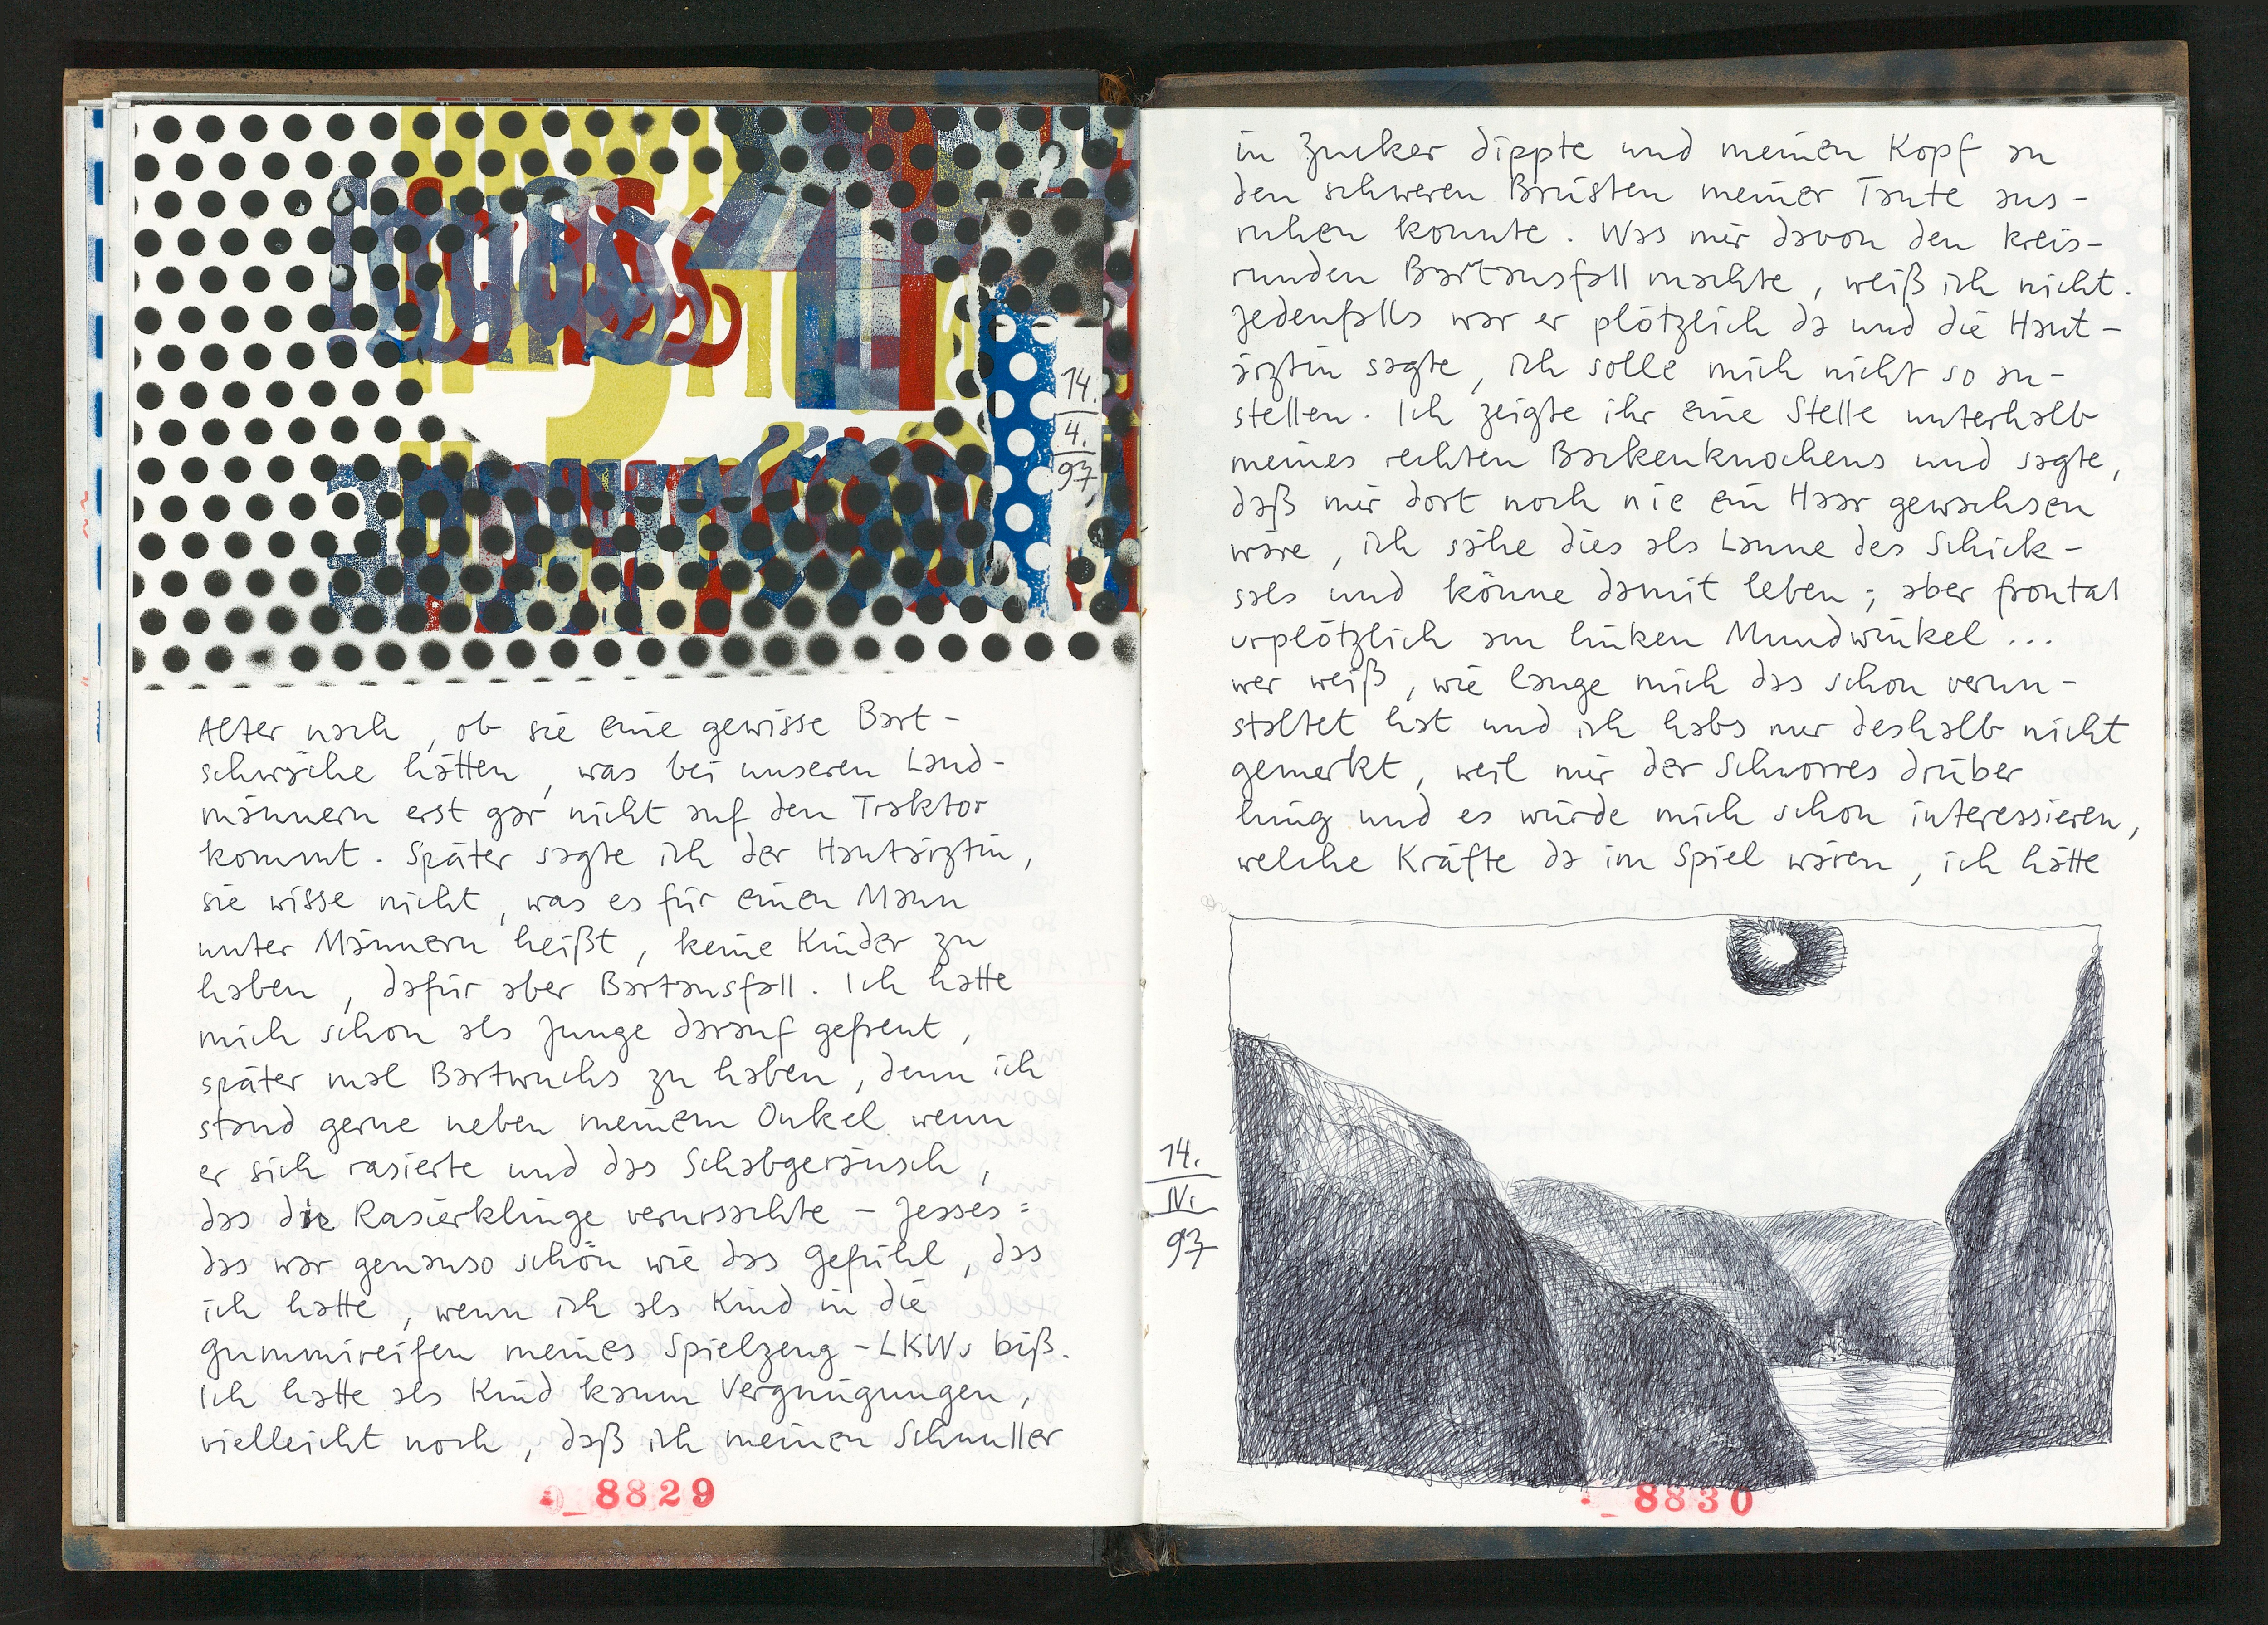 14.
4.
97
Alter nach, ob sie eine gewisse Bart-
schwäche hätten, was bei unseren Land-
männern erst gar nicht auf den Traktor
kommt. Später sagte ich der Hautärztin,
sie wisse nicht, was es für einen Mann
unter Männern heißt, keine Kinder zu
haben, dafür aber Bartausfall. Ich hatte
mich schon als Junge darauf gefreut,
später mal Bartwuchs zu haben, denn ich
stand gerne neben meinem Onkel wenn
er sich rasierte und das Schabgeräusch,
das die Rasierklinge verursachte – Jesses:
das war genauso schön wie das Gefühl, das
ich hatte, wenn ich als Kind in die
Gummireifen meines Spielzeug-LKWs biß.
Ich hatte als Kind kaum Vergnügungen,
vielleicht noch, daß ich meinen Schnuller
8829
in Zucker dippte und meinen Kopf an
den schweren Brüsten meiner Tante aus-
ruhen konnte. Was mir davon den kreis-
runden Bartausfall machte, weiß ich nicht.
Jedenfalls war er plötzlich da und die Haut-
ärztin sagte, ich solle mich nicht so an-
stellen. Ich zeigte ihr eine Stelle unterhalb
meines rechten Backenknochens und sagte,
daß mir dort noch nie ein Haar gewachsen
wäre, ich sähe dies als Laune des Schick-
sals und könne damit leben; aber frontal
urplötzlich am linken Mundwinkel ...
wer weiß, wie lange mich das schon verun-
staltet hat und ich habs nur deshalb nicht
gemerkt, weil mir der Schnorres drüber
hing und es würde mich schon interessieren,
welche Kräfte da im Spiel wären, ich hätte
14.
IV.
97
8830